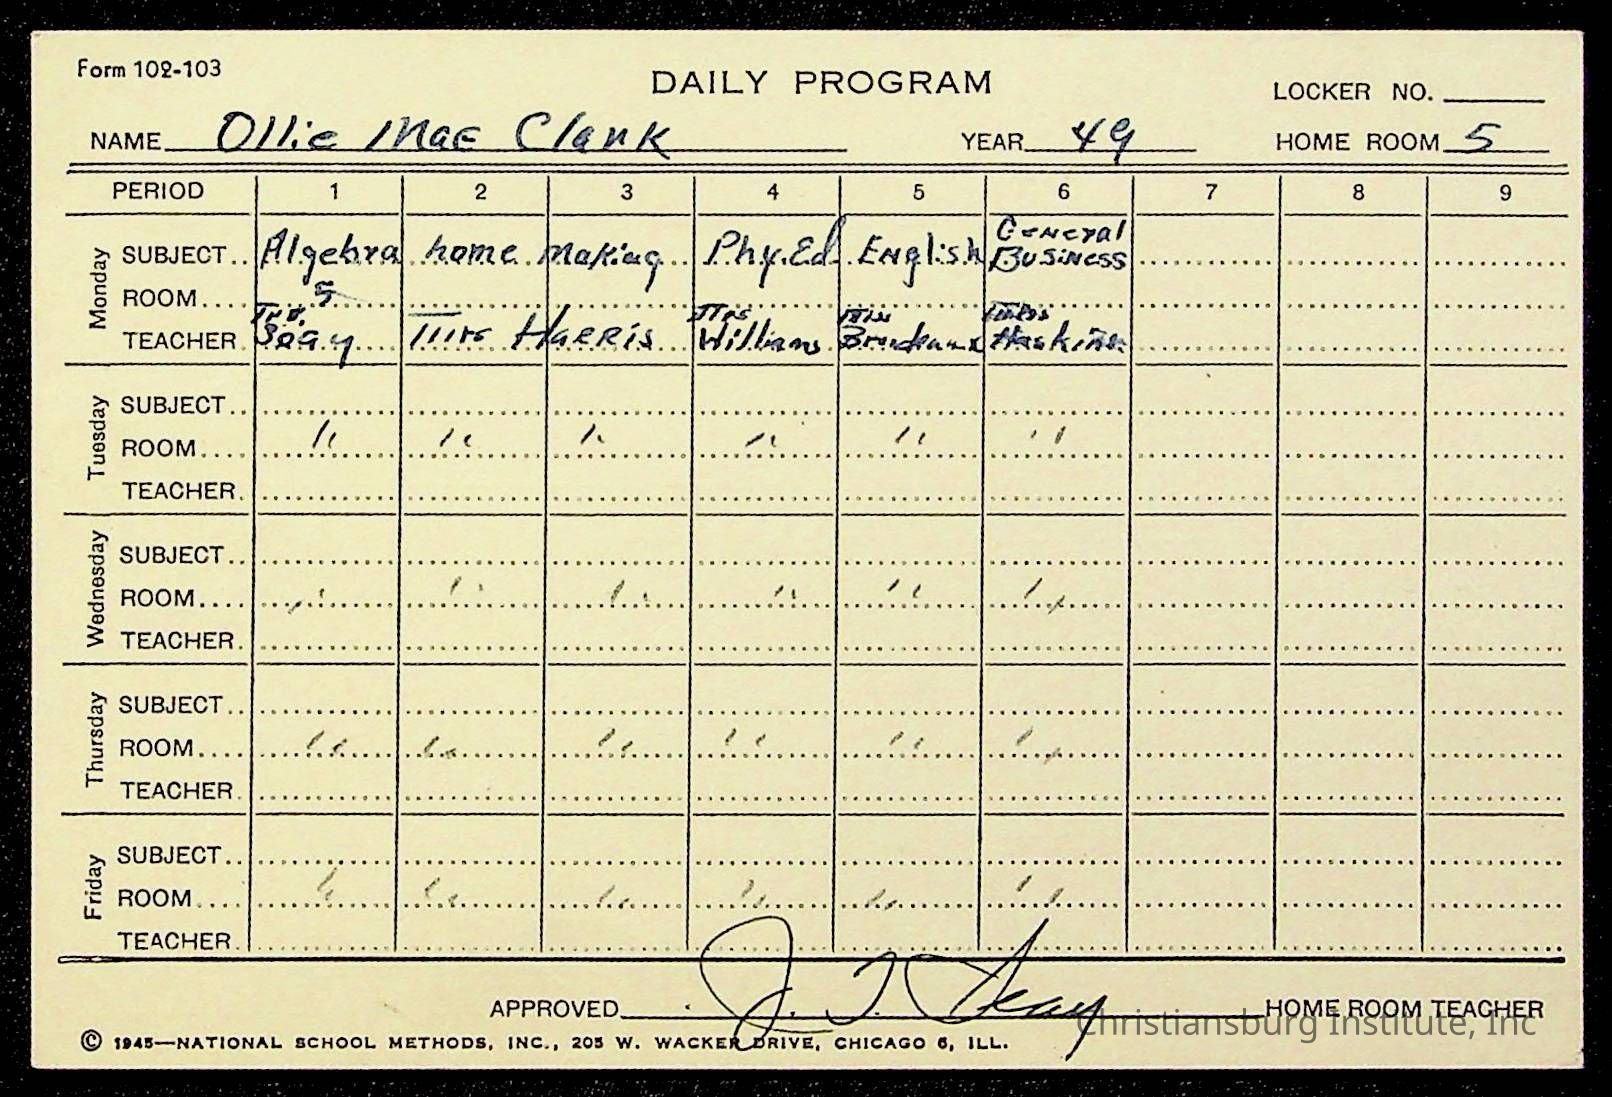 Form 102-103
DAILY PROGRAM
LOCKER NO.
NAME Ollie Mae Clark YEAR 49 HOME ROOM 5
PERIOD 1 2 3 4 5 6 7 8 9
Monday
SUBJECT Algebra home Making Phy. Ed. English General Business
ROOM 5
TEACHER Mrs Harris Mrs Williams Miss
Tuesday
SUBJECT
ROOM " " " " " "
TEACHER
Wednesday
SUBJECT
ROOM " " " " " "
TEACHER
Thursday
SUBJECT
ROOM " " " " " "
TEACHER
Friday
SUBJECT
ROOM " " " " " "
TEACHER
APPROVED J. T. HOME ROOM TEACHER
Christiansburg Institute, Inc
© 1945—NATIONAL SCHOOL METHODS, INC., 205 W. WACKER DRIVE, CHICAGO 6, ILL.